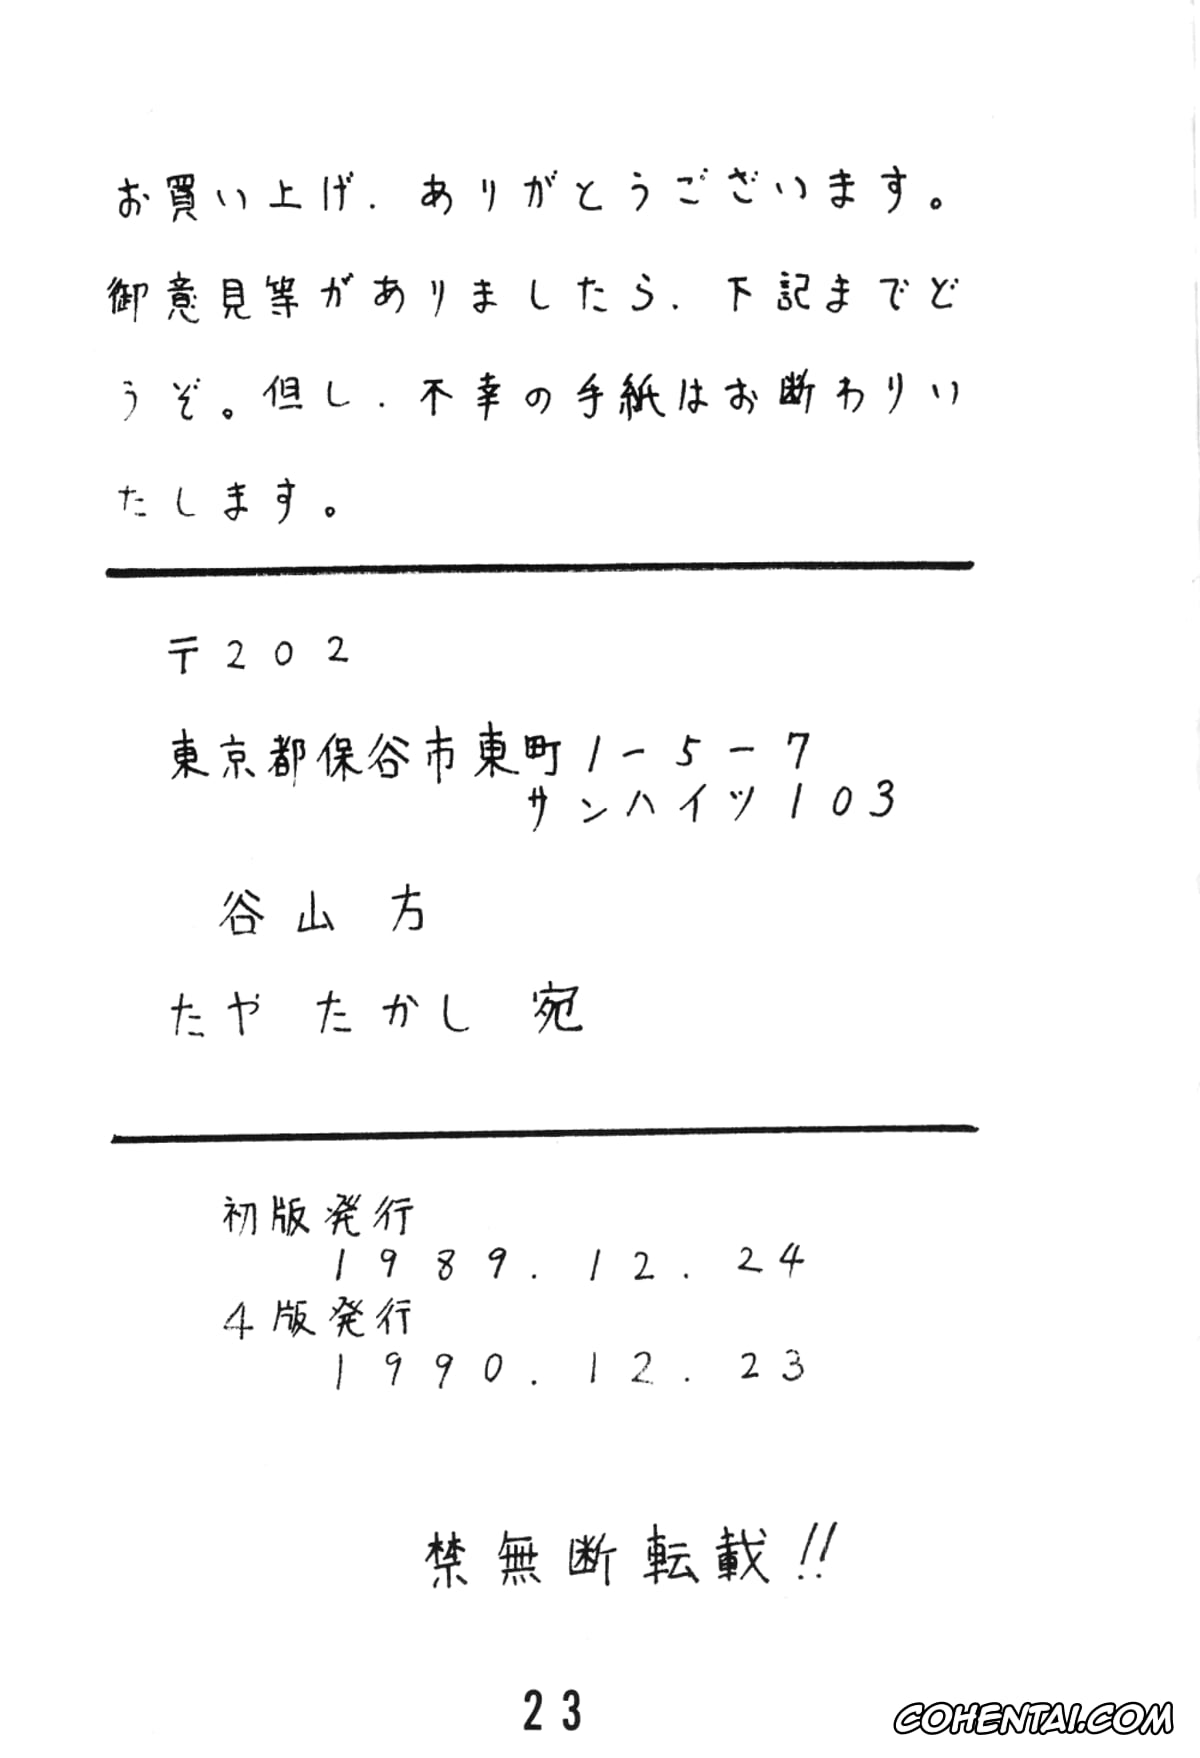 お買い上げ．ありがとうございます。
御意見等がありましたら．下記までど
うぞ。但し．不幸の手紙はお断わりい
たします。
〒202
東京都保谷市東町1-5-7
サンハイツ103
谷山 方
たや たかし 宛
初版発行
1989.12.24
4版発行
1990.12.23
禁無断転載!!
23
COHENTAI.COM